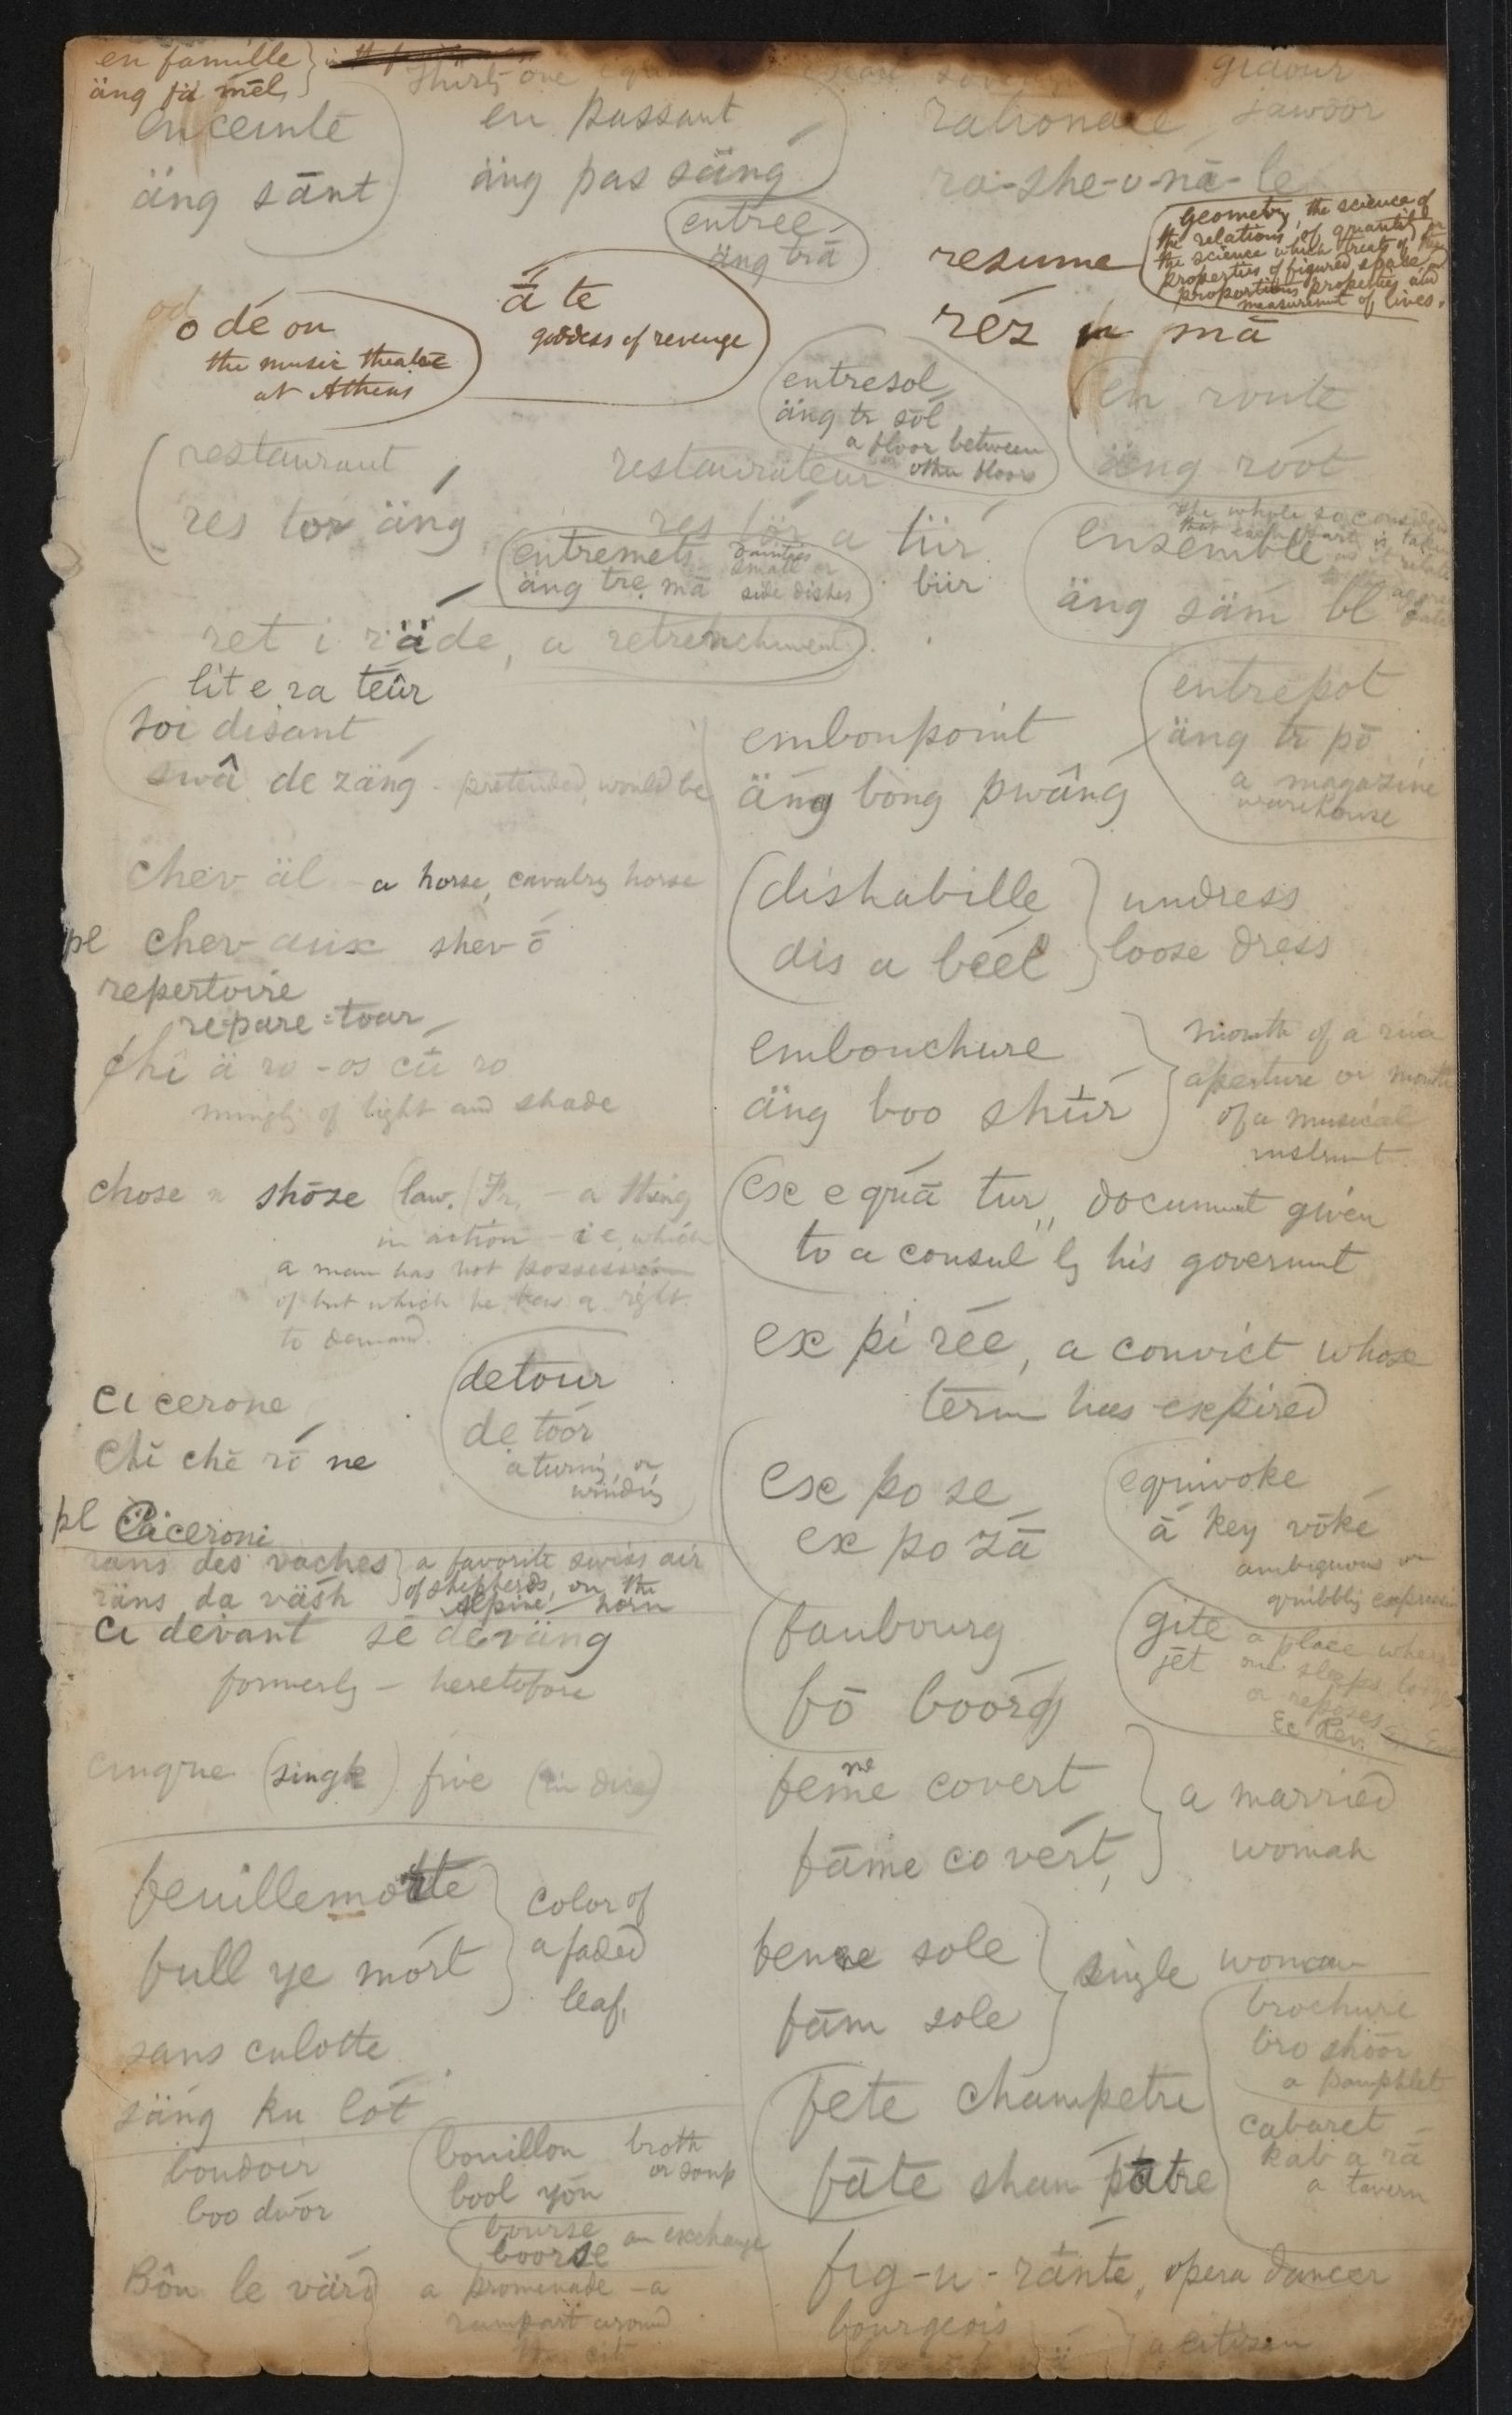 en famille
äng fä mēl
giaour
jawoor
enceinte
äng sānt
en passant
äng pas säng
rationale
ra-she-o-nā-le
entree
äng trā
resume
rěz u mā
geometry, the science of
the relations of quantity
the science which treats of the
properties of figured space
properties and
measurement of lines.
o dē on
the music theatre
at Athens
ā te
goddess of revenge
entresol
äng tr sōl
a floor between
other floors
en route
äng root
restaurant
res tor äng
restaurateur
res tōr a tür
bür
entremets dainties
small or
äng tre mā side dishes
ensemble
äng säm bl
the whole so considered
that each part is taken
ret i räde, a retrenchment
lit e ra teûr
soi disant
swâ de zäng - pretended, would be
embonpoint
äng bong pwâng
entrepot
äng tr pō
a magazine
warehouse
chev äl - a horse, cavalry horse
pl chev aux shev ō
dishabille
dis a beel
undress
loose dress
repertoire
re-pare-toar
chi ä ro-os cū ro
mingly of light and shade
embouchure
äng boo shür
mouth of a
aperture or mouth
of a musical
chose n shōze (law. Fr. - a thing
in action - i e, which
a man has not possession
of but which he has a right
to demand.
ex e quā tur, document given
to a consul by his
ex pi rēe, a convict whose
term has expired
detour
de toor
a turning or
winding
ci cerone
chē chē rō ne
pl Ciceroni
ex po se
ex po zā
equivoke
ā key vōke
ambiguous or
quibbling expression
rans des vaches
räns da väsh
a favorite swiss air
of shepherds, on the
Alpine horn
ci devant sē de väng
formerly - heretofore
faubourg
fō boorg
gite a place where
jēt one sleeps lodges
or reposes
Ec Rev.
cinque (singk) five (in dice)
feme covert
me
fāme co vert,
a married
woman
feuillemorte
full ye mort
color of
a faded
leaf.
feme sole
fām sole
single woman
sans culotte
säng ku lot
fete champetre
fāte shan pātre
brochure
bro shoor
a pamphlet
cabaret
kab a rā
a tavern
boudoir
boo dwor
bouillon broth
or soup
bool yon
bourse an exchange
boorse
Bôu le värd a promenade - a
rampart around
fig-u-ränte, opera dancer
bourgeois
a citizen